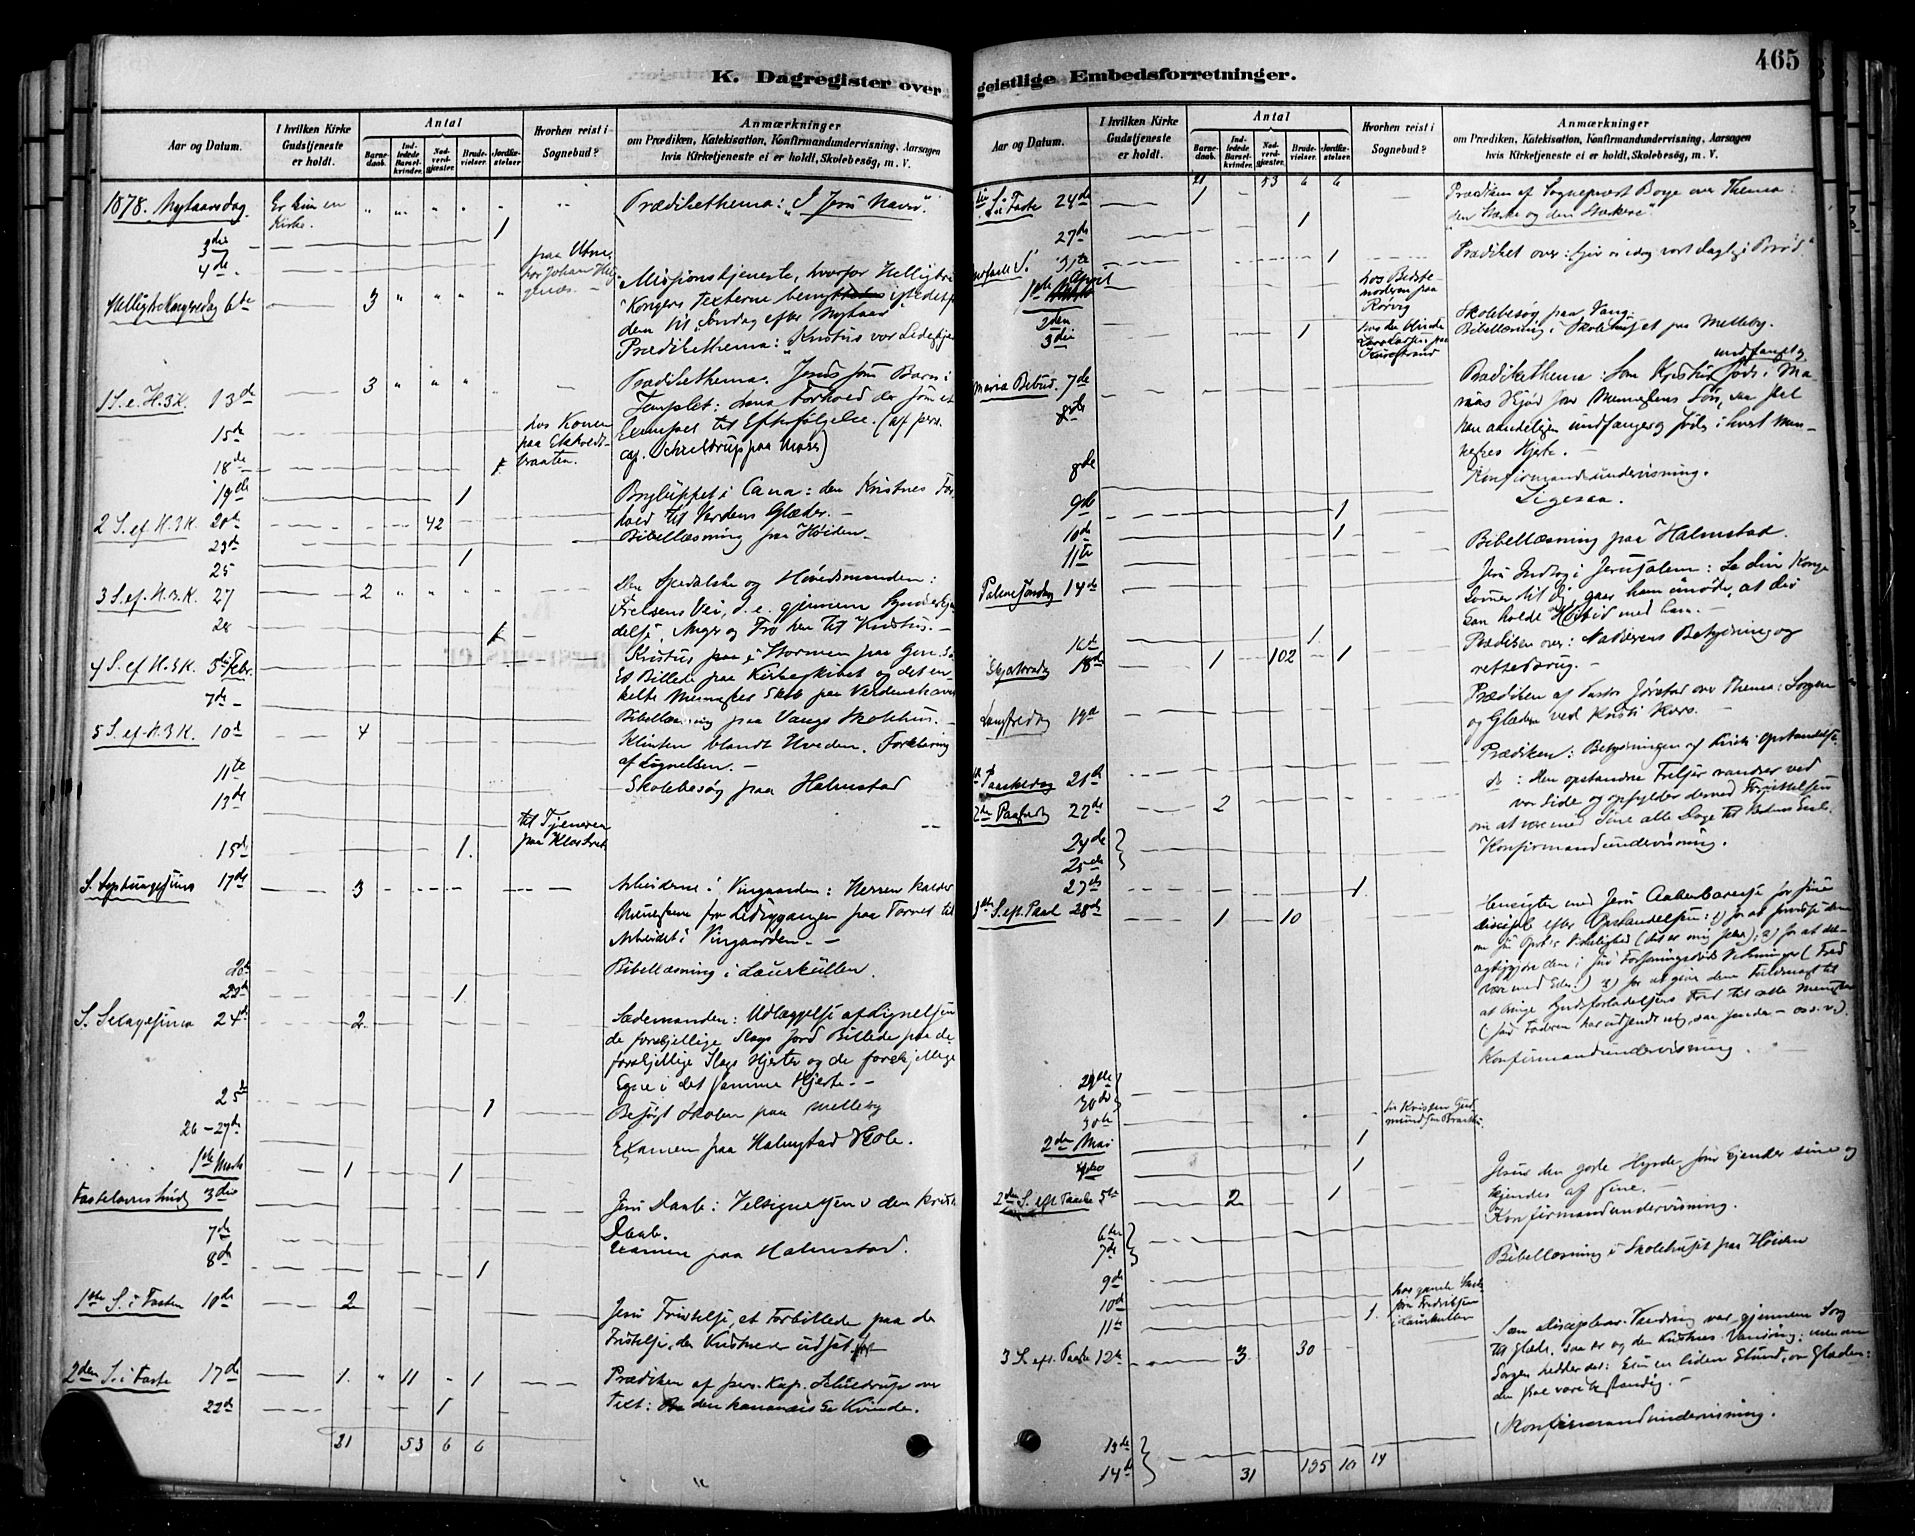 465
K. Dagregister over geistlige Embedsforretninger.
Aar og Datum.
I hvilken Kirke Gudstjeneste er holdt.
Antal
Barnedaab.
Indledede Barselkvinder.
Nadverdgjæster.
Brudevielser.
Jordfæstelser.
Hvorhen reist i Sognebud?
Anmærkninger
om Prædiken, Katekisation, Konfirmandundervisning, Aarsagen
hvis Kirketjeneste ei er holdt, Skolebesøg, m. V.
1878. Nytaarsdag
Kirke.
Prædikethema: "I Jesu Navn".
1
3die
4de
paa
Hellig 3 Kongersdag 6te
3
Missionstjeneste, hvorfor Hellig tre
Kongers Texterne
dem til Søndag efter Nytaar
Prædikethema: "Kristus vor
1 S. e. H. 3 K. 13de
3
Prædikethema: Jesus som Barn i
Templet: hans Forhold der som et
Exempel til Efterfølgelse. (af pers.
cap. Schieldrup paa Moss)
15de
hos Konen
paa
braaten.
18de
1
19de
1
Brylluppet i Cana: den Kristnes For-
hold til Verdens Glæder.-
2 S. ef. H. 3 K. 20de
42
Bibellæsning paa Høiden
23de
25
1
3 S. ef. H. 3 K. 27
2
Den Spedalske og Høvedsmanden:
Frelsens Vei, d. e. gjennem Synderkjen-
delse, Anger og Tro hen til Kristus.-
28
1
4 S. ef H. 3 K. Febr.
Kristus paa Stormen paa Gen. Sø
Et Billede paa Kirkeskibet og det en-
kelte Menneskes Skib paa Verdenshavet
7de
Bibellæsning paa Vangs Skolehus.-
5 S. ef. H. 3 K. 10de
4
Klinten blandt Hveden. Forklaring
af Lignelsen.-
11te
Skolebesøg paa Halmstad
13de
til Tjeneren
paa Klostret
15de
1
S. Septuagesima 17de
3
Arbeiderne i Vingaarden: Herren kalder
Menneskene fra Lediggangen paa Torvet til
Arbeidet i Vingaarden.-
20de
Bibellæsning i Laurkullen.
22de
1
S. Sexagesima 24de
2
Sædemanden: Udlæggelse af Lignelsen
de forskjellige Slags Jord Billede paa de
forskjellige Slags Hjerter og de forskjellige
Egne i det samme Hjerte.-
25de
1
Besøgt Skolen paa Melleby
26-27de
Examen paa Halmstad Skole.
1ste Marts
1
1
Fastelavnssønd 3die
Jesu Daab: Velsignelsen v den kristne
Daab.
7de
Examen paa Halmstad.
8de
1
1ste S. i Fasten 10de
2
Jesu Fristelse, et Forbillede paa de
Fristelser, de Kristne ere udsat for
2den S. i Faste 17de
1. " 11 - 1
Prædiken af pers. Kap. Schieldrup over
Text: den kananæiske Kvinde.
22de
1
21 53 6 6
Aar og Datum.
I hvilken Kirke Gudstjeneste er holdt.
Antal
Barnedaab.
Indledede Barselkvinder.
Nadverdgjæster.
Brudevielser.
Jordfæstelser.
Hvorhen reist i Sognebud?
Anmærkninger
om Prædiken, Katekisation, Konfirmandundervisning, Aarsagen
hvis Kirketjeneste ei er holdt, Skolebesøg, m. V.
21 53 6 6
S. i Faste 24de
1
Prædiken af Sogneprest Borge over Thema:
"den Stærke og den Stærkere"
27de
1
31te
1
Prædiket over: Giv os idag vort daglige Brød"
1ste April
hos Bedste-
moderen paa
Rørvig
2den
Skolebesøg paa Vang.
3die
1
hos den blinde
Bibellæsning i Skolehuset paa Melleby.
Maria Bebud. 7de
undfanget og
Prædikethema: Som Kristus føds i Ma-
rias Skjød som Menneskens Søn, saa skal
han aandeligen undfanges og fødes i hvert Men-
neskes Hjerte.-
8de
8de
Konfirmandundervisning.
9de
1
Ligesaa.
10de
1
11te
Bibellæsning paa Halmstad.
Palmesøndag 14de
Jesu Indtog i Jerusalem: Se din Konge
kommer til dig, gaar ham imøde, at du
kan holde Høitid med ham.-
16de
1
Skjærtorsdag 18de
1 102 1
Prædiken over: Nadverens Betydning og
rette Brug.-
Langfredag 19de
Prædiken af Pastor Jørstad over Thema: Sorgen
og Glæden ved Kristi Kors.-
1ste Paaskedag 21de
Prædiken: Betydningen af Kristi Opstandelse.
2den Paaskedag 22de
2
do: Den opstandne Frelser vandrer ved
vor Side og opfylder dermed Forjættelsen
om at være med Sine alle Dage til Verdens Ende.
24de
25de
Konfirmandundervisning.
27de
1
1ste S. eft. Paask 28de
1 10
Hensigten med Jesu Aabenbarelse for sine
Disciple efter Opstandelsen: 1) for at forvisse dem
om sin Opst.s Virkelighed (det er mig selv); 2) for at del-
agtiggjøre dem i sin Forsoningsdøds Virkninger (Fred
være med Eder!) 3) for at give dem Fuldmagt til
at bringe Syndsforladelsens Ord til alle Mennesker
(som Faderen har udsendt mig, saa sender - o.s.v.).
Konfirmandundervisning.
29de
30te
30te
2den Mai
1
1
2den S. eft Paaske 5te
2 1
Jesus den gode Hyrde, som kjender sine og
kjendes af sine.-
Konfirmandundervisning.
6te
7de
Bibellæsning i Skolehuset paa Høiden
9de
10de
1.
Fredriksen
i Laurkullen
11te
3 S. eft. Paaske 12te
3 30
Som Disciplenes Vandring var gjennem Sorg
til Glæde, saa er og den Kristnes Vandring; men om
Sorgen hedder det: End en liden Stund, om Glæden:
den skal være bestandig.-
Konfirmandundervisning.
13de
14de
31 195 10 14